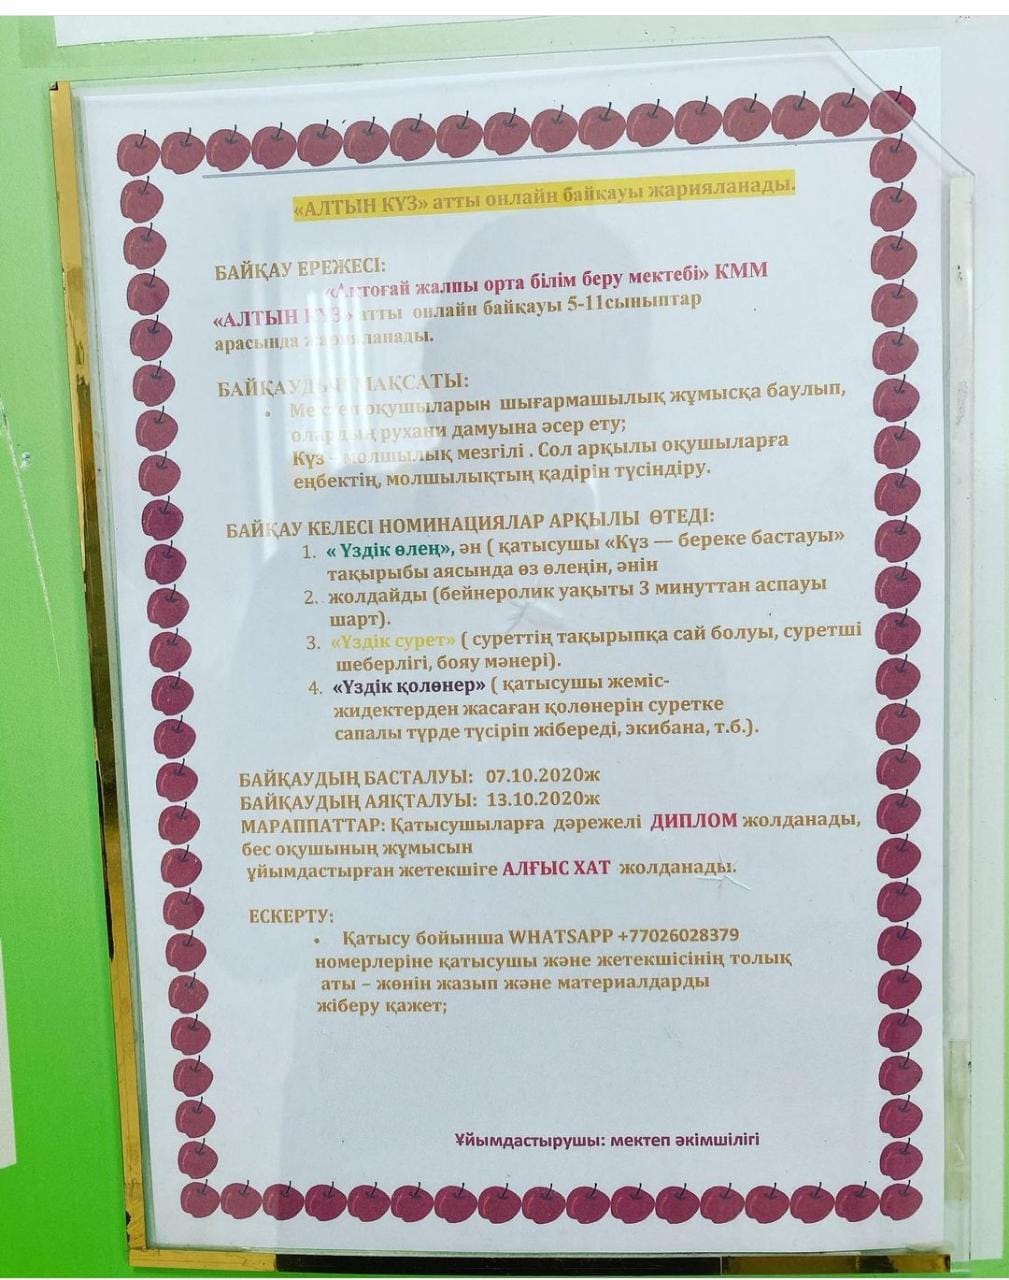 «АЛТЫН КҮЗ» атты онлайн байқауы жарияланады.
БАЙҚАУ ЕРЕЖЕСІ:
«Ақтоғай жалпы орта білім беру мектебі» КММ
«АЛТЫН КҮЗ» атты онлайн байқауы 5-11сыныптар
арасында жарияланады.
БАЙҚАУДЫҢ МАҚСАТЫ:
• Мектеп оқушыларын шығармашылық жұмысқа баулып,
олардың рухани дамуына әсер ету;
Күз – молшылық мезгілі . Сол арқылы оқушыларға
еңбектің, молшылықтың қадірін түсіндіру.
БАЙҚАУ КЕЛЕСІ НОМИНАЦИЯЛАР АРҚЫЛЫ ӨТЕДІ:
1. « Үздік өлең», ән ( қатысушы «Күз — береке бастауы»
тақырыбы аясында өз өлеңін, әнін
2. жолдайды (бейнеролик уақыты 3 минуттан аспауы
шарт).
3. «Үздік сурет» ( суреттің тақырыпқа сай болуы, суретші
шеберлігі, бояу мәнері).
4. «Үздік қолөнер» ( қатысушы жеміс-
жидектерден жасаған қолөнерін суретке
сапалы түрде түсіріп жібереді, экибана, т.б.).
БАЙҚАУДЫҢ БАСТАЛУЫ: 07.10.2020ж
БАЙҚАУДЫҢ АЯҚТАЛУЫ: 13.10.2020ж
МАРАППАТТАР: Қатысушыларға дәрежелі ДИПЛОМ жолданады,
бес оқушының жұмысын
ұйымдастырған жетекшіге АЛҒЫС ХАТ жолданады.
ЕСКЕРТУ:
• Қатысу бойынша WHATSAPP +77026028379
номерлеріне қатысушы және жетекшісінің толық
аты – жөнін жазып және материалдарды
жіберу қажет;
Ұйымдастырушы: мектеп әкімшілігі